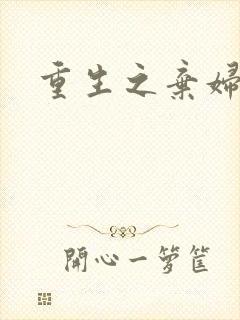 重生之棄婦
開心一籮筐